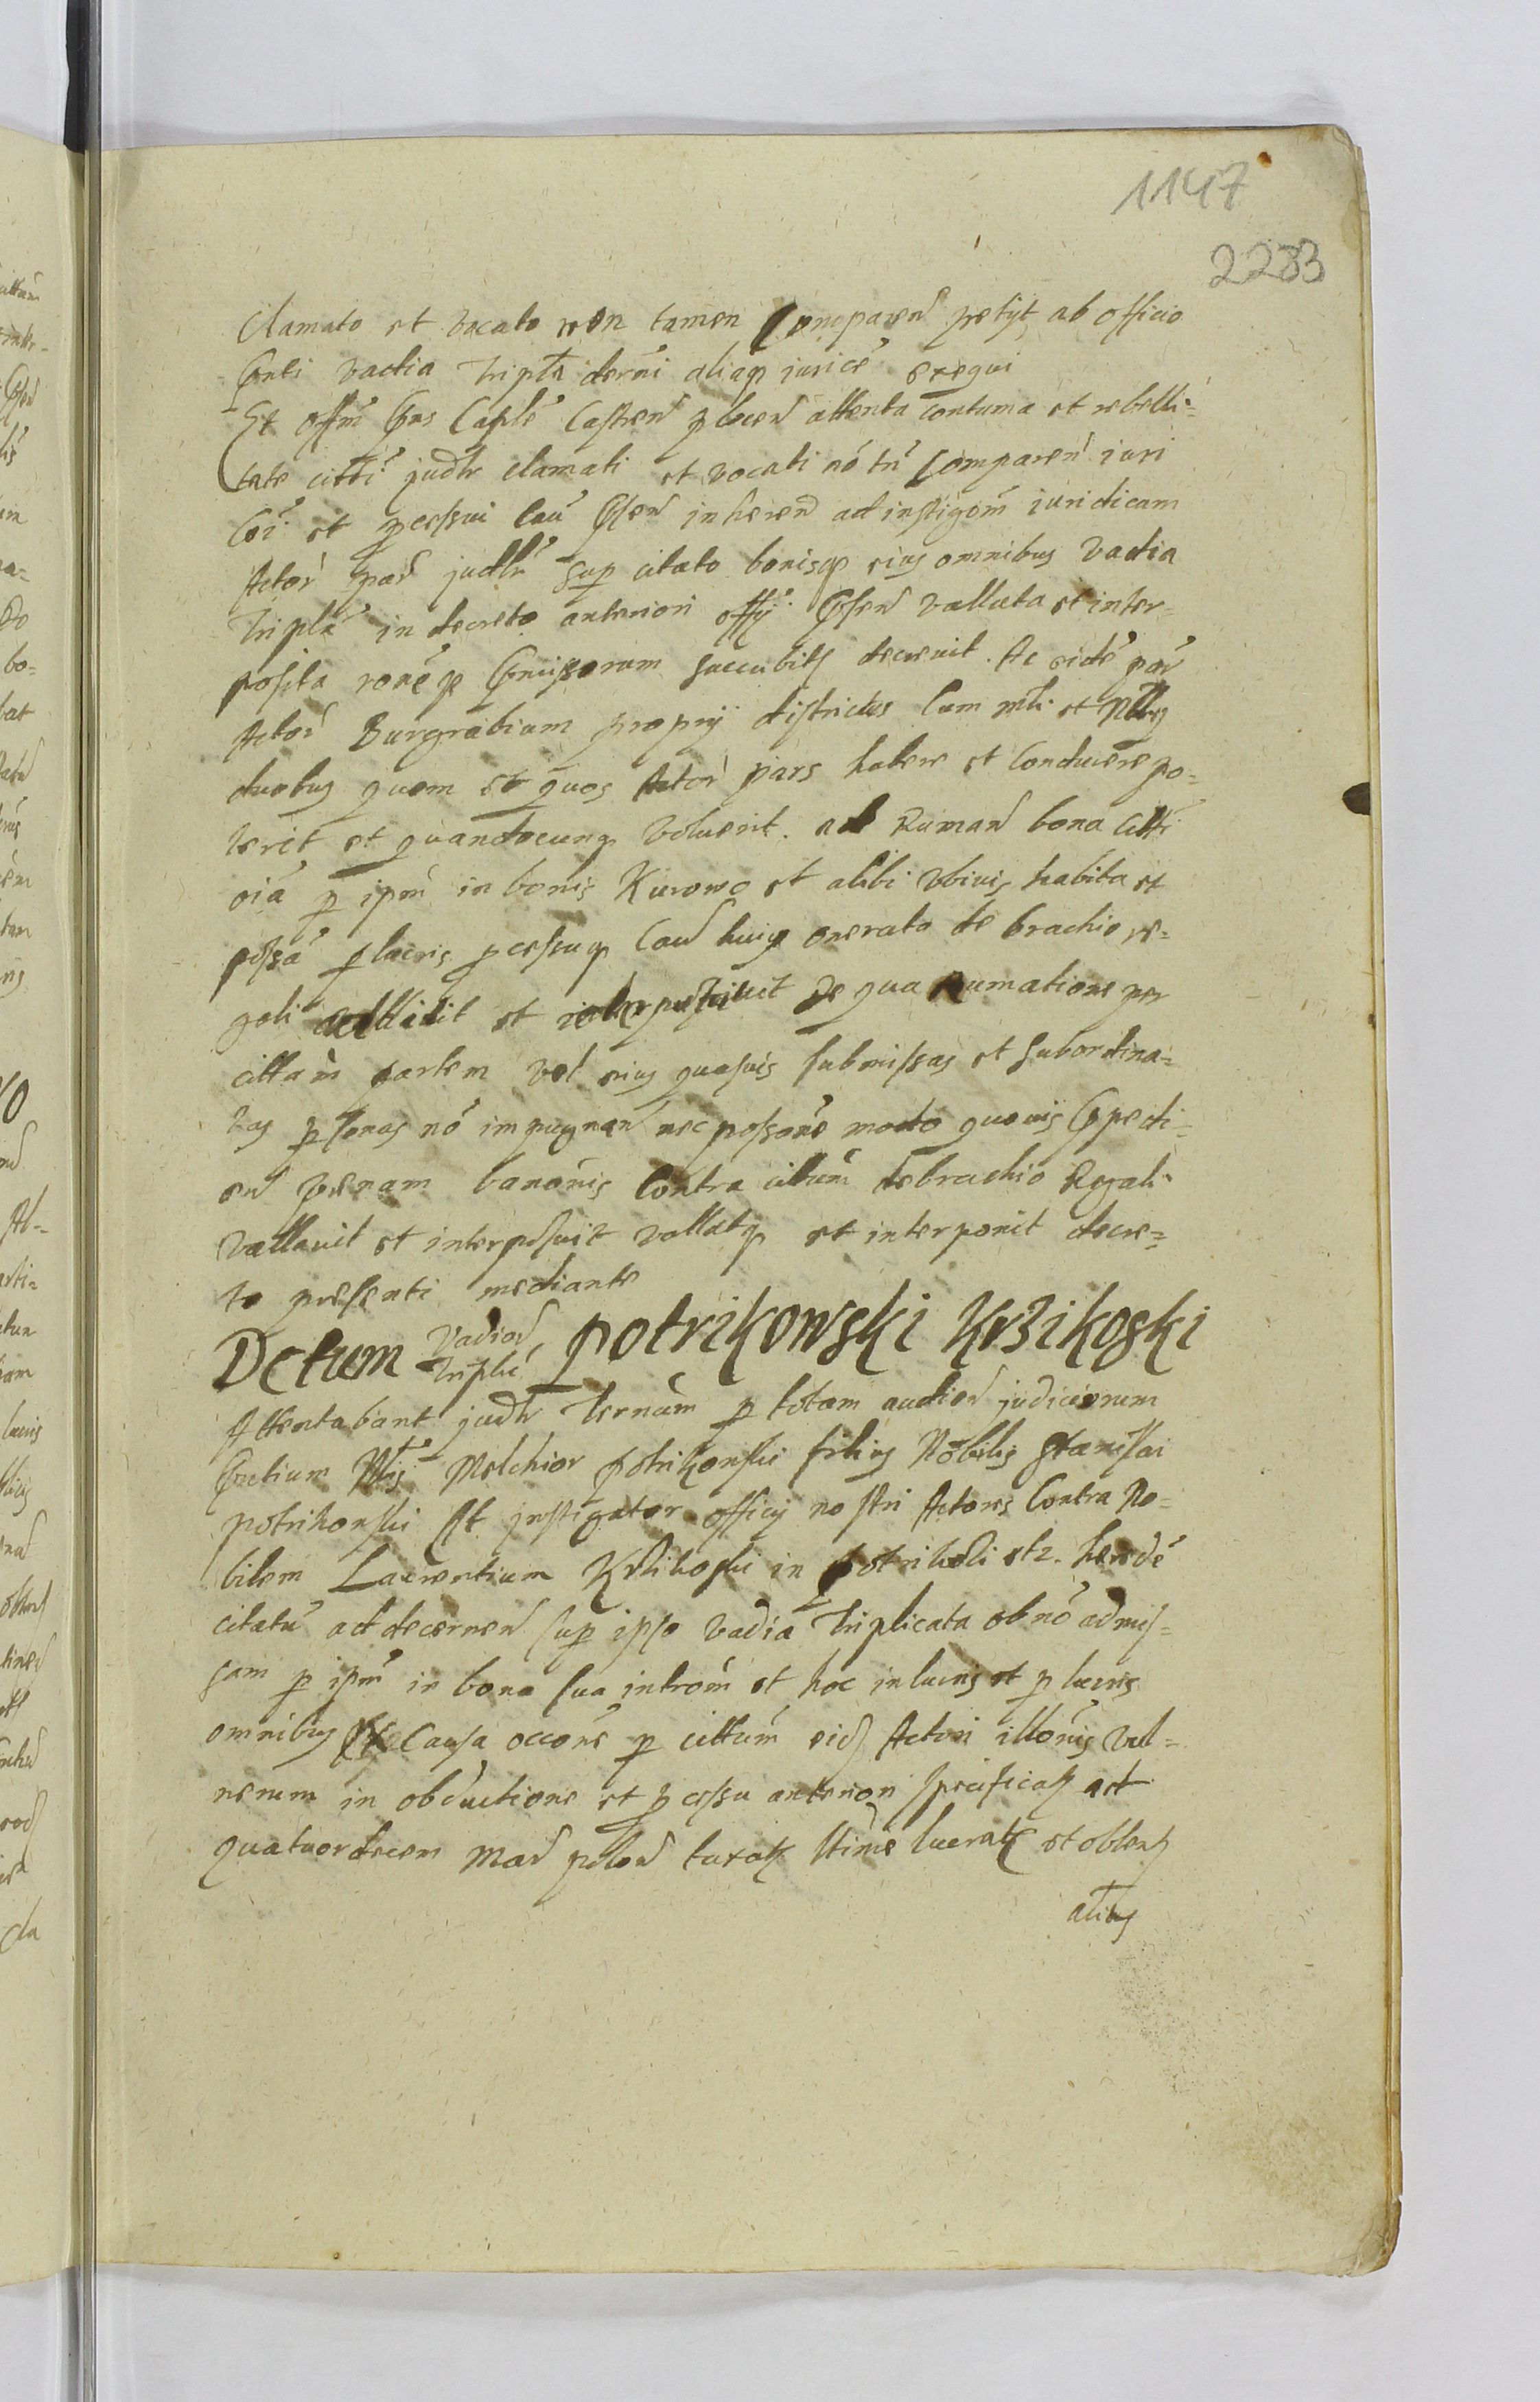 1147
2283
Clamato et vocato non tamen Comparen petyt ab officio
pnti vadia tripta derni aliaq iurice exequi
Et offm pns Caple Castren plocen attenta contuma et rebelli=
tate citti judtr clamati et vocati nó tn comparen iuri
coi et pcessui cau pnsen inheren ad instigom iuridicam
Actor par judtr sup citato bonisq eius omnibus vadia
tripla in decreto anteriori offy pnsen vallata et inter=
posita roneq pmissorum succubits decrevit. Ac eide par
Actor Burgrabium propry districtus Cum mli et Nlbus
duobus quem et quos Actor pars habere et Conducere po=
terit et quandocunq voluerit. ad Ruman bona citti
oia p ipm in bonis Kurowo et alibi ubivis habita et
possa p lucris pcessuq cau huiq onerata de brachio re=
gali addidit et interposuit De qua Rumatione per
cittam partem vel eius quasvis submissas et subordina=
tas psonas nó impugnan nec possone modo quovis Expedi=
en poenam banonis Contra cittum de brachio Regali
vallavit et interposuit vallatq et interponit decre=
to presenti mediante
Dctum vadior triplic Potrikowski Krzikoski
Attentabant judtr ternam p totam audien judiciorum
pntium Nlis Melchior potrikonski filius Nobilis Stanislai
potrikonski Et instigator officy nostri Actores Contra No=
bilem Laurentium Krzikoski in potrikozi etz. herede
citatu ad decernen sup ipso vadia triplicata ob nó admis=
sam p ipm in bona sua introm et hoc in lucris et p lucris
omnibus Ex Causa occone p cittum eid Actori illonis vul=
nerum in obductione et pcessu anteriori specificat ad
quatuordecem Mar polon taxat ltime lucrat et obtent
alias